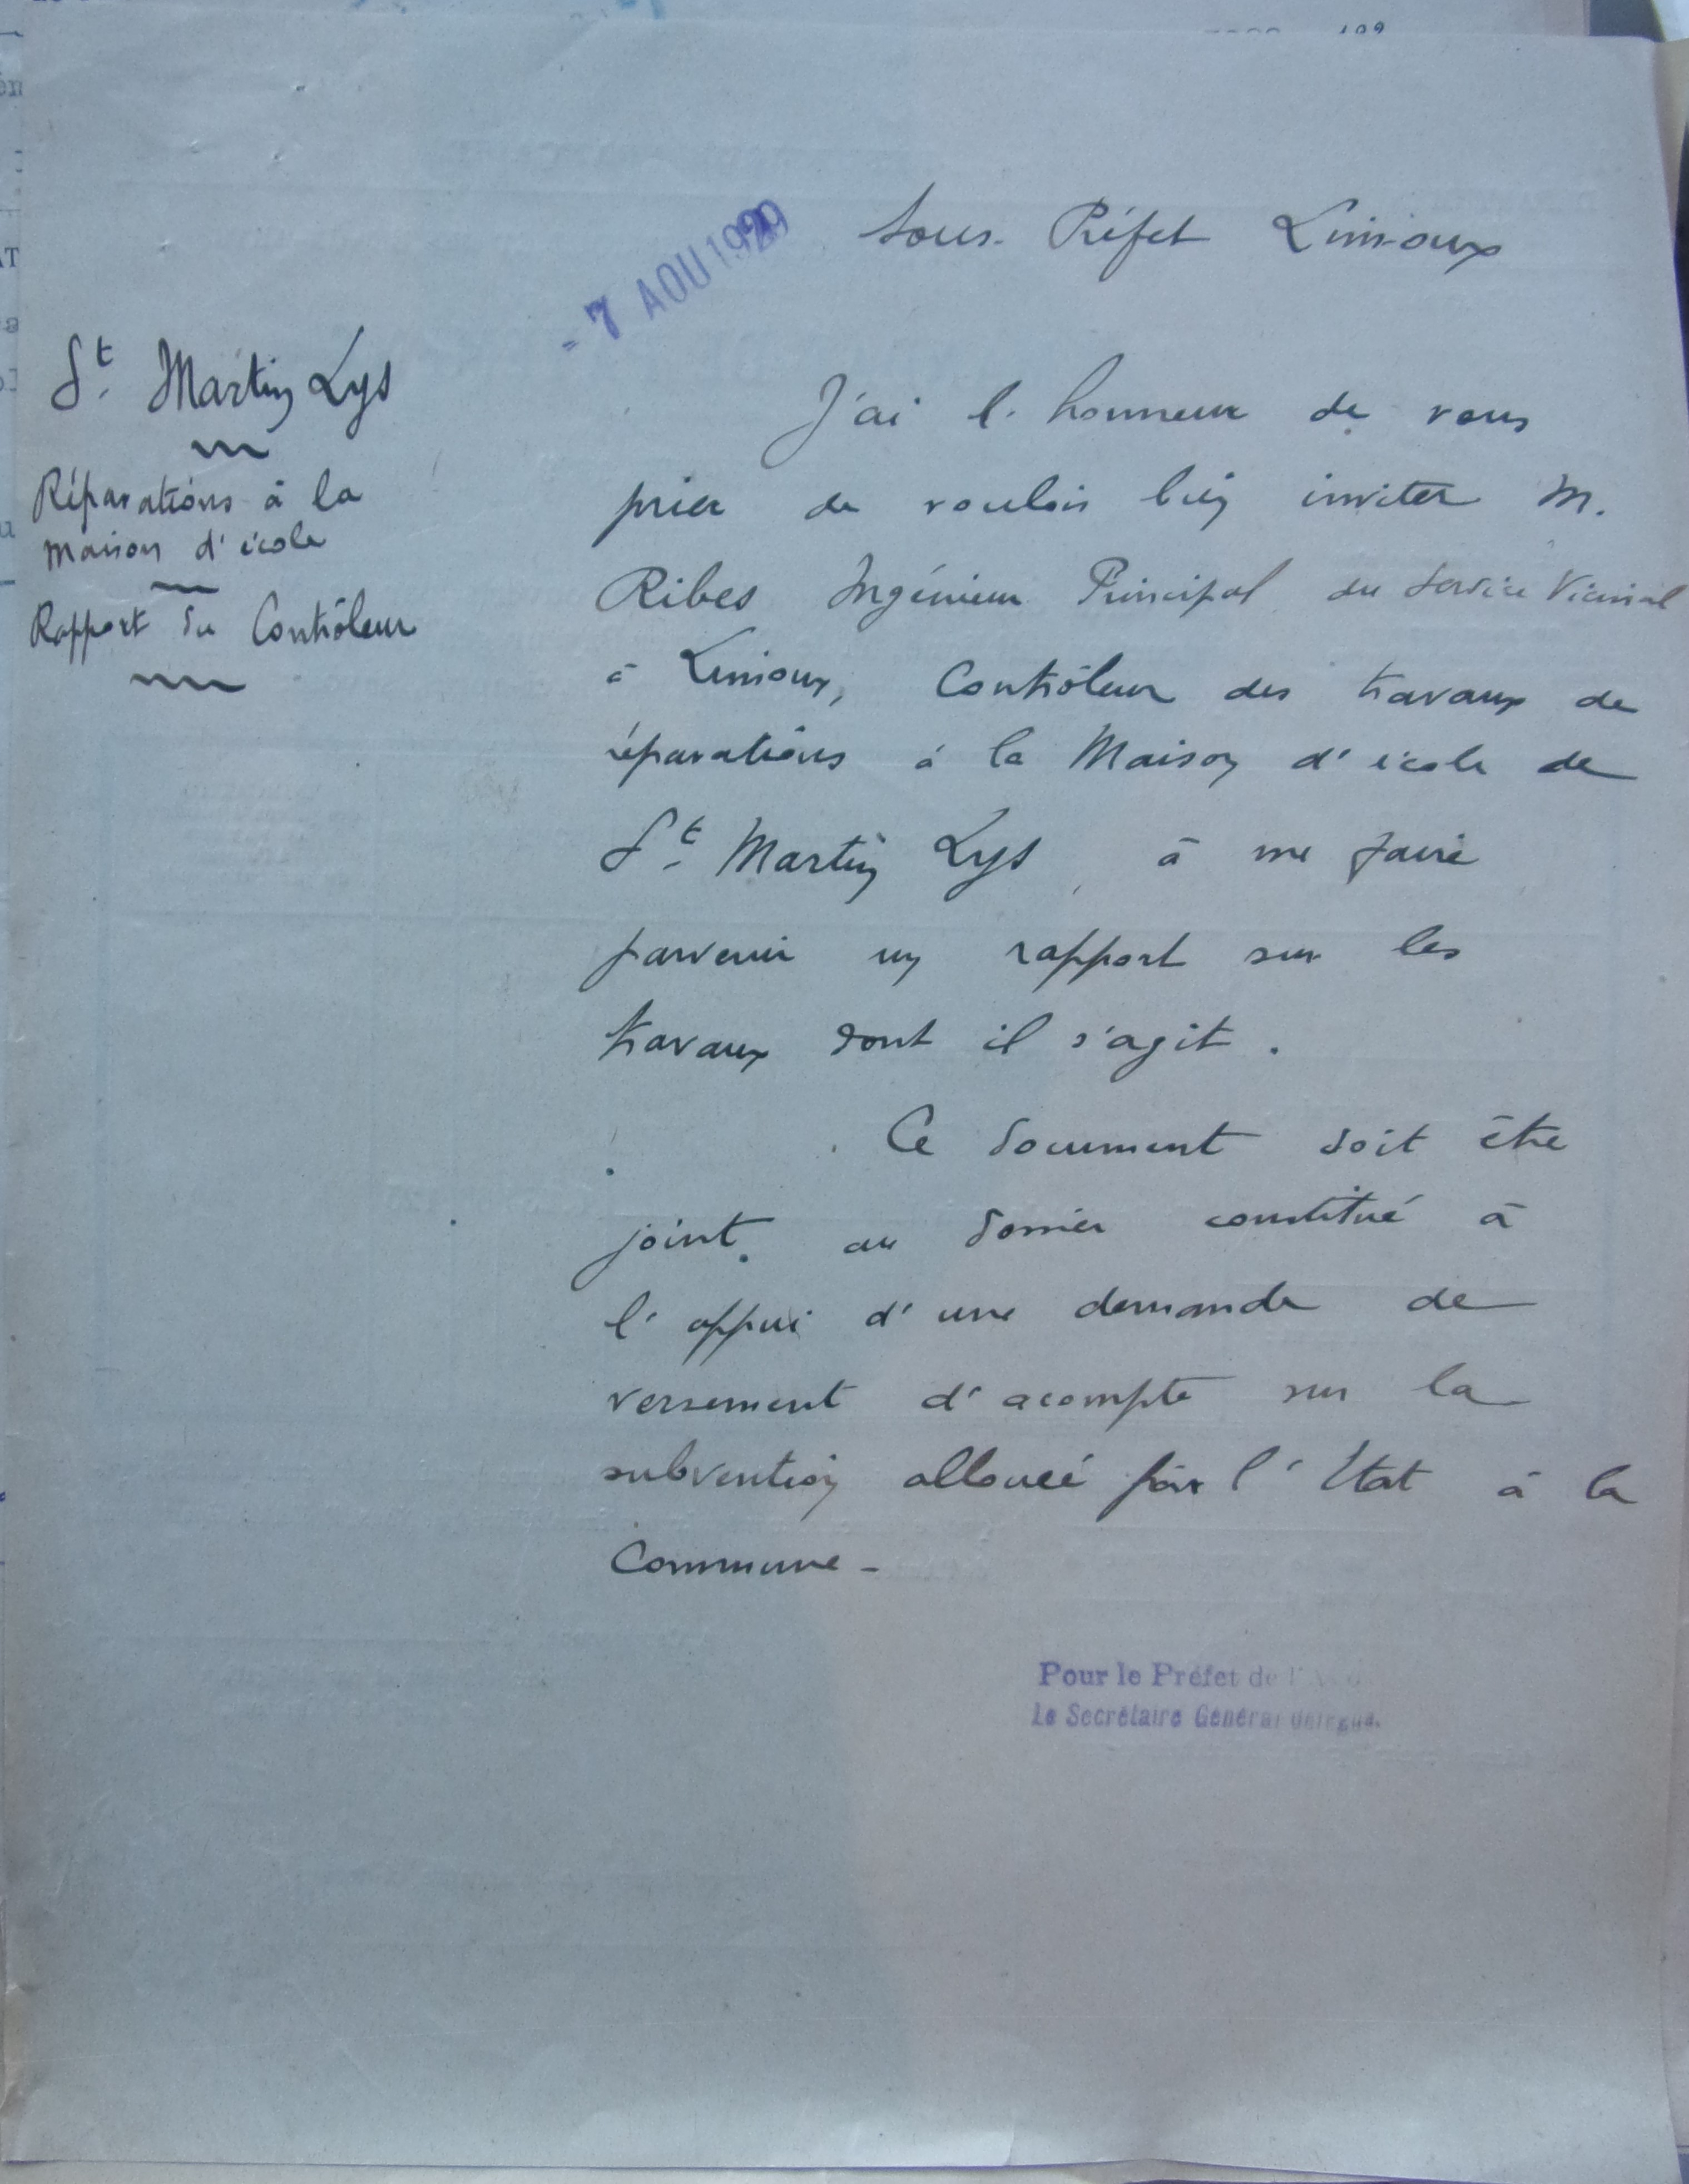 Sous-Préfet Limoux
- 7 AOU 1929
St. Martin Lys
Réparations à la
maison d'école
Rapport du Contrôleur
J'ai l'honneur de vous
prier de vouloir bien inviter M.
Ribes Ingénieur Principal du Service Vicinal
à Limoux, Contrôleur des travaux de
réparations à la Maison d'école de
St. Martin Lys, à me faire
parvenir un rapport sur les
travaux dont il s'agit.
Ce document doit être
joint au dossier constitué à
l'appui d'une demande de
versement d'acompte sur la
subvention allouée par l'Etat à la
Commune -
Pour le Préfet de l'Aude
Le Secrétaire Général délégué.